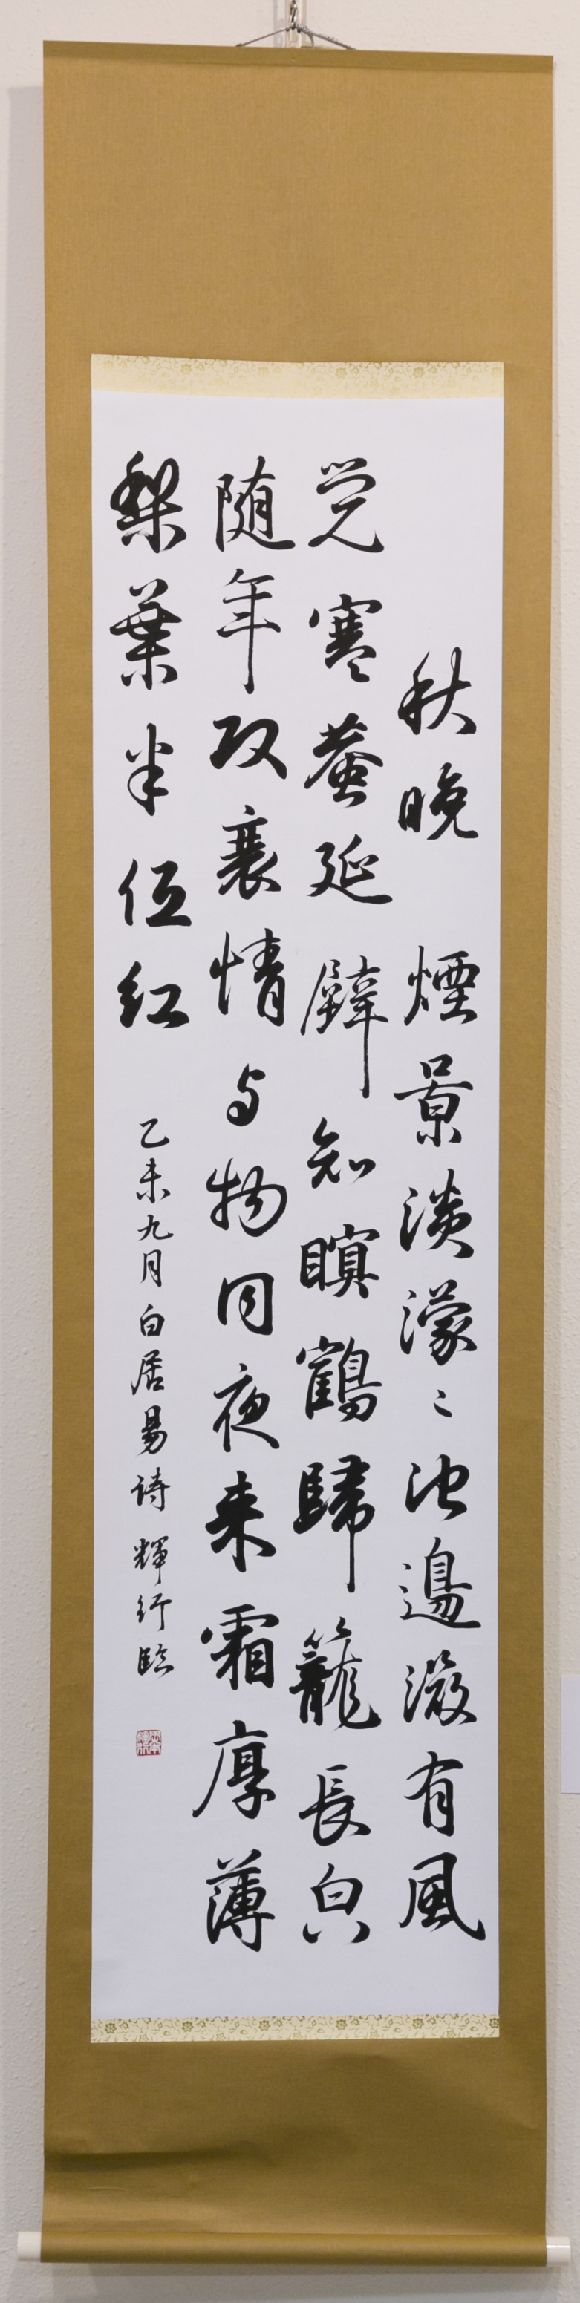 秋晚 煙景淡濛〻池邊微有風
覚寒蛬延壁知暝鶴歸籠長皃
随年改衰情与物同夜来霜厚薄
梨葉半低紅
乙未九月白居易詩 輝行臨